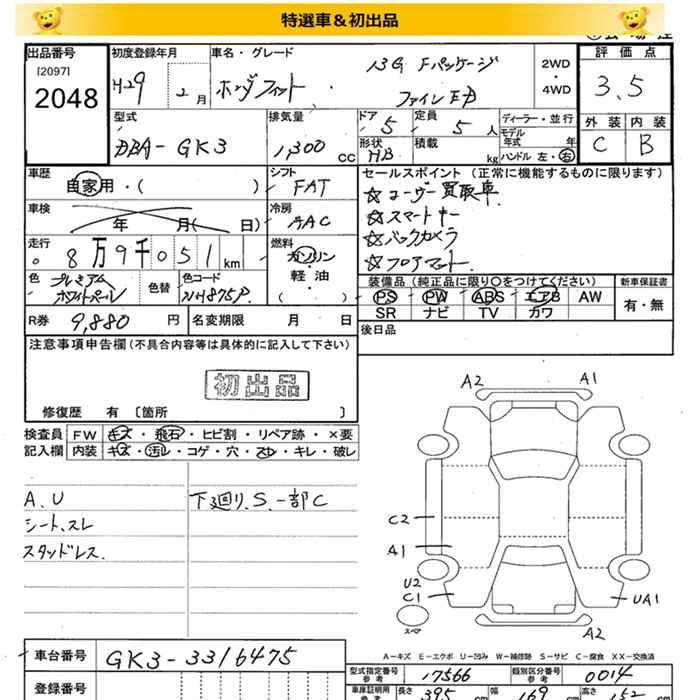 特選車＆初出品
出品番号
[2097]
2048
初度登録年月
H29 2月
車名・グレード
ホンダフィット
13G Fパッケージ
ファインED
2WD
・
4WD
評価点
3.5
外装 内装
C B
型式
DBA-GK3
排気量
1,300 cc
ドア 5
形状 HB
定員 5人
積載 kg
ディーラー・並行
モデル年式 年
ハンドル 左・右
車歴
自家用・( )
シフト
FAT
セールスポイント (正常に機能するものに限ります)
☆ユーザー買取車
☆スマートキー
☆バックカメラ
☆フロアマット
車検
年 月( )日
冷房
AAC
走行
8万9千051km
燃料
ガソリン
軽・油
( )
色
プレミアム
ホワイトパール
色替
色コード
NH875P
装備品 (純正品に限り○をつけてください)
PS PW ABS エアB AW
SR ナビ TV カワ
新車保証書
有・無
R券 9,880円
名変期限 月 日
後日品
注意事項申告欄 (不具合内容等は具体的に記入して下さい)
初出品
修復歴 有 〔箇所 〕
検査員 FW キズ・飛石・ヒビ割・リペア跡・×要
記入欄 内装 キズ・汚レ・コゲ・穴・スレ・キレ・破レ
A.U
シート、スレ
スタッドレス.
下廻り.S.一部C
A2 A1
C2
A1
U2
C1
UA1
スペア
A2
A－キズ E－エクボ U－凹み W－補修跡 S－サビ C－腐食 XX－交換済
車台番号 GK3-3316475
登録番号
型式指定番号 参考 17566
類別区分番号 参考 0014
車庫証明用 参考 長さ 395 cm 幅 169 cm 高さ 152 cm